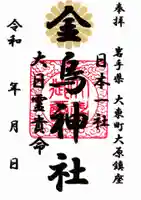 奉拝
岩手県 大東町大原鎮座
日本一社
金烏神社
大日霊貴命
令和 年 月 日